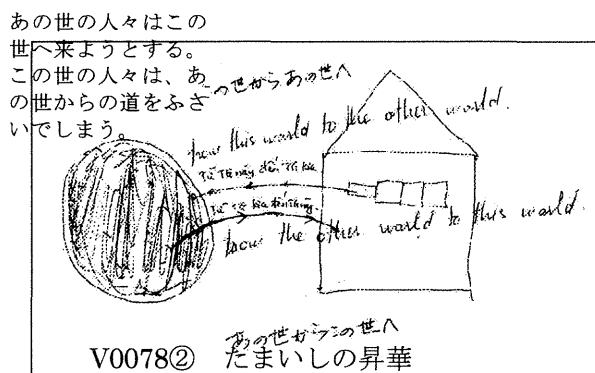 あの世の人々はこの
世へ来ようとする。
この世の人々は、あ
の世からの道をふさ
いでしまう。
この世からあの世へ
from this world to the other world.
Từ TG này đến TG kia
Từ TG kia đến TG này
from the other world to this world.
あの世からこの世へ
V0078② たまいしの昇華